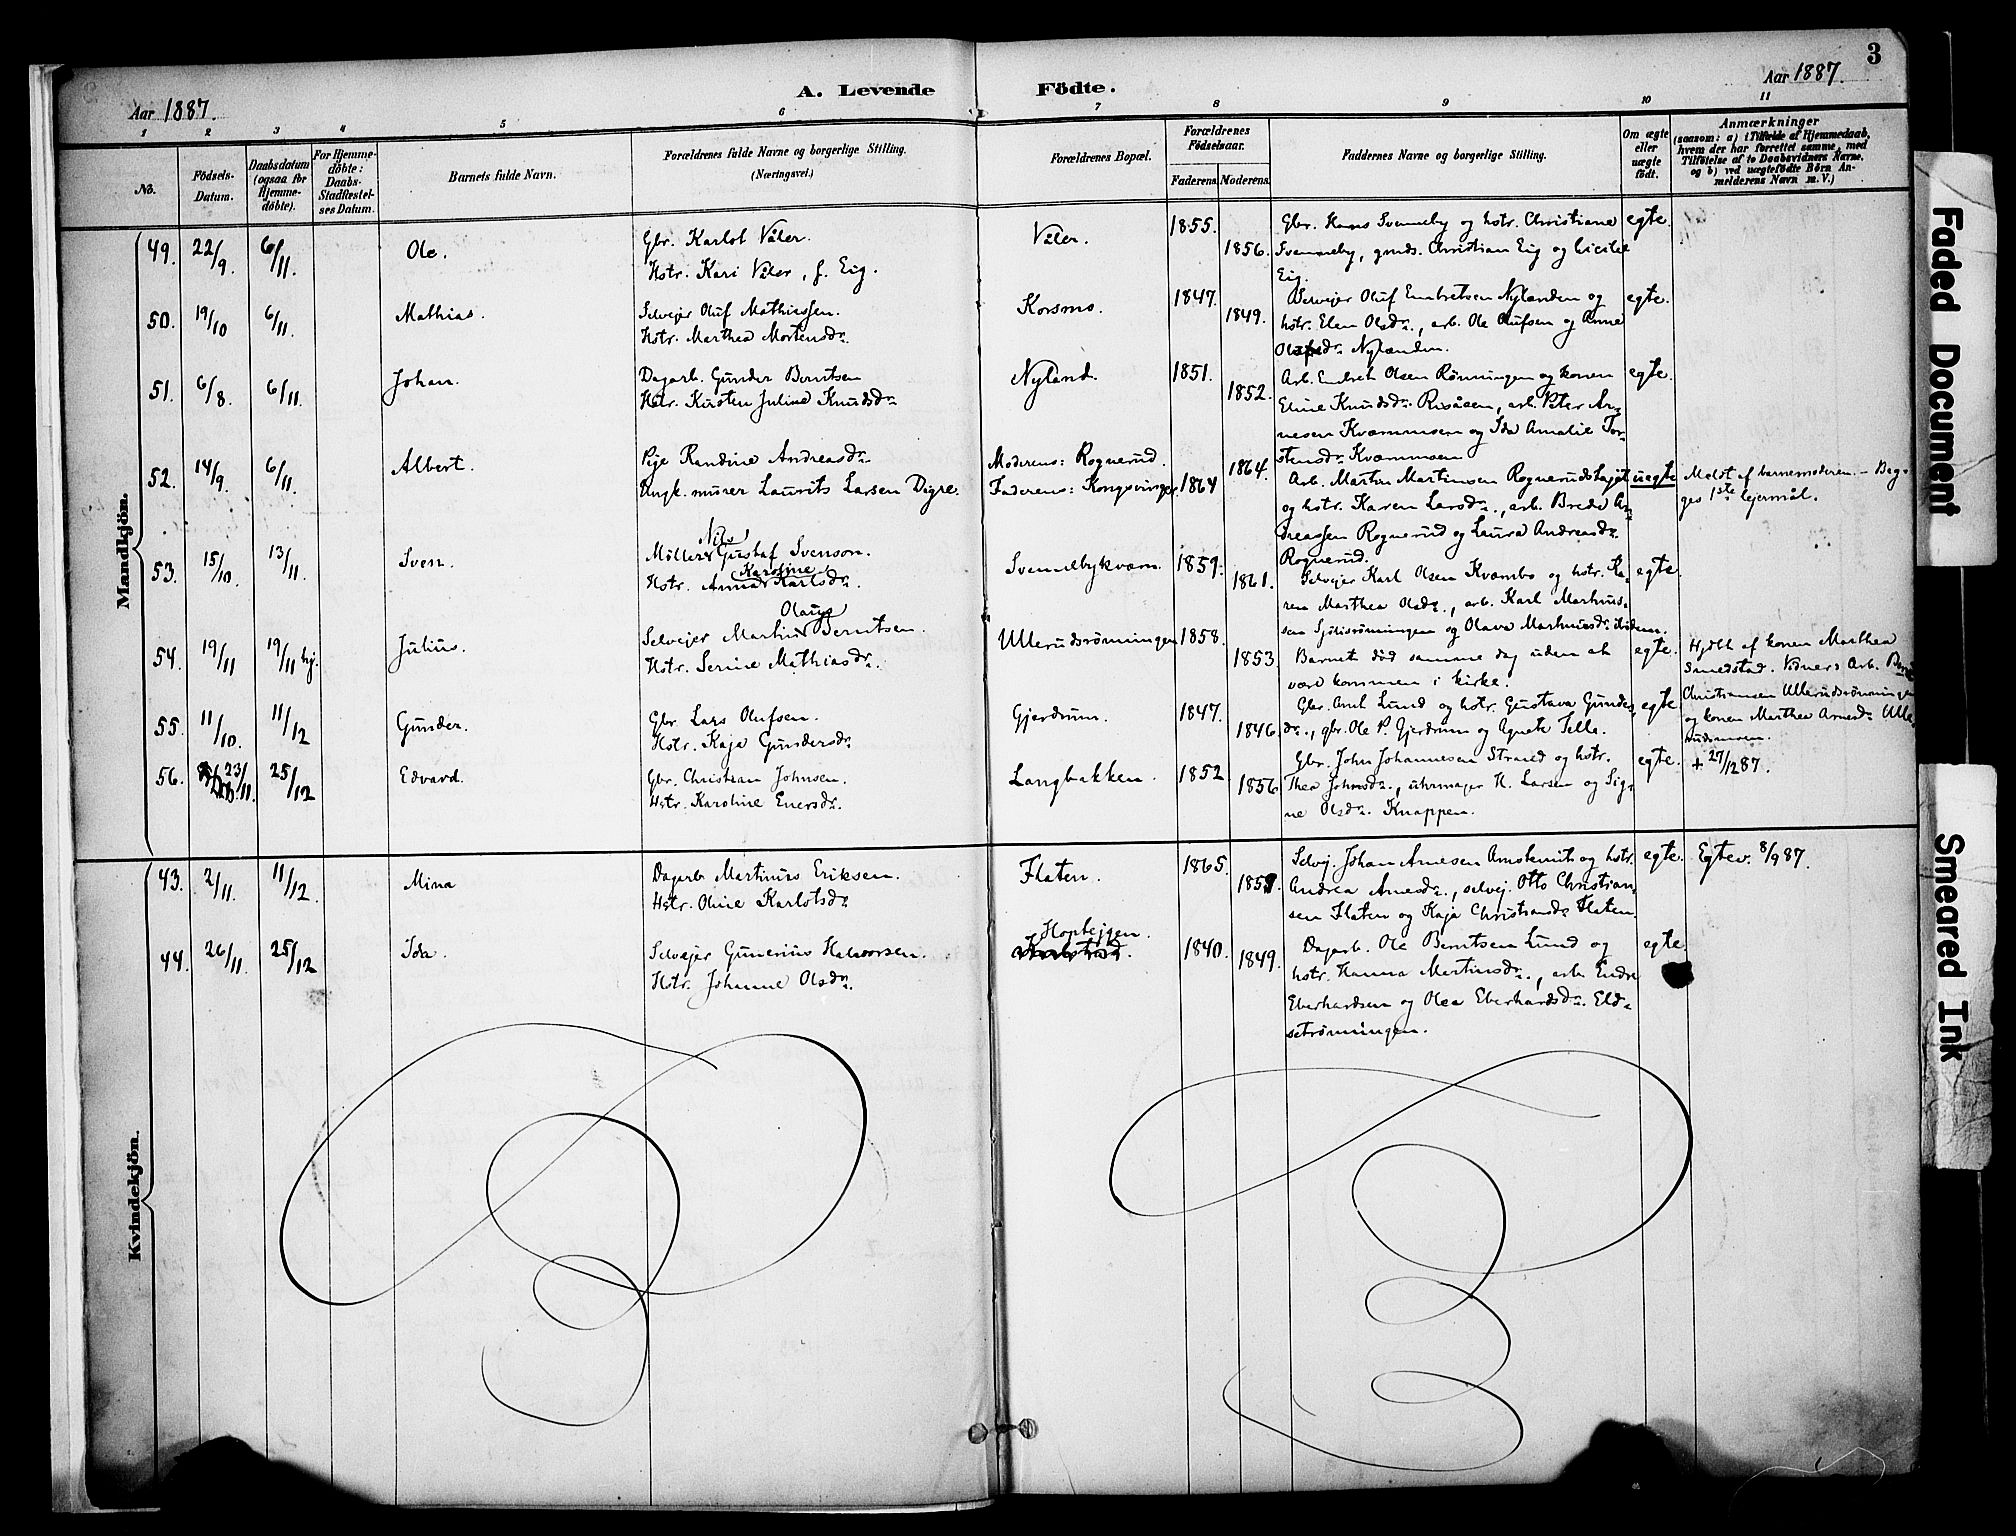 3
Aar 1887.
A. Levende Födte.
Aar 1887.
1 2 3 4 5 6 7 8 9 10 11
No.
Födsels-
Datum.
Daabsdatum
(ogsaa for
Hjemme-
döbte).
For Hjemme-
döbte:
Daabs-
Stadfæstel-
ses Datum.
Barnets fulde Navn.
Forældrenes fulde Navne og borgerlige Stilling.
(Næringsvei.)
Forældrenes Bopæl.
Forældrenes
Födselsaar.
Faderens. Moderens.
Faddernes Navne og borgerlige Stilling.
Om ægte
eller
uægte
födt.
Anmærkninger
(saasom: a) i Tilfælde af Hjemmedaab,
hvem der har forrettet samme, med
Tilföielse af to Daabsvidners Navne,
og b) ved uægtefödte Börn An-
melderens Navn m. V.)
Mandkjön.
49. 22/9. 6/11. Ole.
Gbr. Karlot Våler.
Hstr. Kari Våler, f. Eig.
Våler. 1855. 1856.
Gbr. Hans Svenneby og hstr. Christiane
Svenneby, grnds. Christian Eig og Cicilie
Eig.
egte.
50. 19/10 6/11. Mathias.
Selvejer Oluf Mathiassen.
Hstr. Marthea Mortensdr.
Korsmo. 1847. 1849.
Selvejer Oluf Embretsen Nylanden og
hstr. Elen Olsdr., arb. Ole Olufsen og Anne
Nylanden.
egte.
51. 6/8. 6/11. Johan.
Dagarb. Gunder Berntsen
Hstr. Kirsten Juline Knudsdr.
Nyland. 1851. 1852.
Arb. Embret Olsen Rönningen og konen
Eline Knudsdr. Risåsen, arb. Peter Ar-
nesen Kvæmmoen og Ida Amalie Tor-
stensdr. Kvæmmoen
egte.
52. 14/9. 6/11. Albert.
Pige Randine Andreasdr.
Ungk. murer Laurits Larsen Digre.
Moderens: Rognerud.
Faderens: Kongsvinger. 1864 1864.
Arb. Martin Martinsen Rognerudshagen
og hstr. Karen Larsdr., arb. Brede An-
dreassen Rognerud og Laura Andreasdr.
Rognerud.
uegte
Meldt af barnemoderen. – Beg-
ges 1ste lejermål.
53. 15/10. 13/11. Sven.
Nils
Möller Gustaf Svenson.
Karoline
Hstr. Anna Karlsdr.
Svennebykværn. 1859. 1861.
Selvejer Karl Olsen Kvæmbo og hstr. Ka-
ren Marthea Olsdr., arb. Karl Marthins-
sen Sjölisrönningen og Olava Marthinsdr. ibidem.
egte.
54. 19/11 19/11 hj. Julius.
Olaus
Selvejer Martin Berntsen.
Hstr. Serine Mathiasdr.
Ullerudsrönningen 1858. 1853.
Barnet död samme dag uden at
være kommen i kirke.
egte.
Hjdbt af konen Marthea
Smedstad. Vidner: Arb. Bernt
Christiansen Ullerudsrönningen
og konen Marthea Arnesdr. Ulle-
rudsmoen.
55. 11/10. 11/12 Gunder.
Gbr Lars Olufsen.
Hstr. Kaja Gundersdr.
Gjerdrum. 1847. 1846.
Gbr. Aml Lund og hstr. Gustava Gunders-
dr., gbr. Ole P. Gjerdrum og Agnete Selle.
egte
56. 23/11. 25/12 Edvard.
Gbr. Christian Johnsen.
Hstr. Karoline Enersdr.
Langbakken. 1852 1856
Gbr. John Johannesen Strand og hstr.
Thea Johnsdr., uhrmager H. Larsen og Sig-
ne Olsdr. Knappen.
egte.
+ 27/12 87.
Kvindekjön.
43. 2/11. 11/12. Mina
Dagarb Martinus Eriksen.
Hstr. Oline Karlotsdr
Flaten. 1865. 1859.
Selvej. Johan Arnesen Arnstenit og hstr.
Andrea Arnesdr., selvej. Otto Christian-
sen Flaten og Kaja Christiansdr. Flaten.
egte.
Egtev. 8/9 87.
44. 26/11. 25/12 Ida.
Selvejer Gunerius Halvorsen.
Hstr. Johanne Olsdr.
Hoptejgen.
1840. 1849.
Dagarb. Ole Berntsen Lund og
hstr. Hanna Martinsdr., arb. Endre
Eberhardsen og Olea Eberhardsdr. Eld-
setrönningen.
egte
Faded Document
Smeared Ink